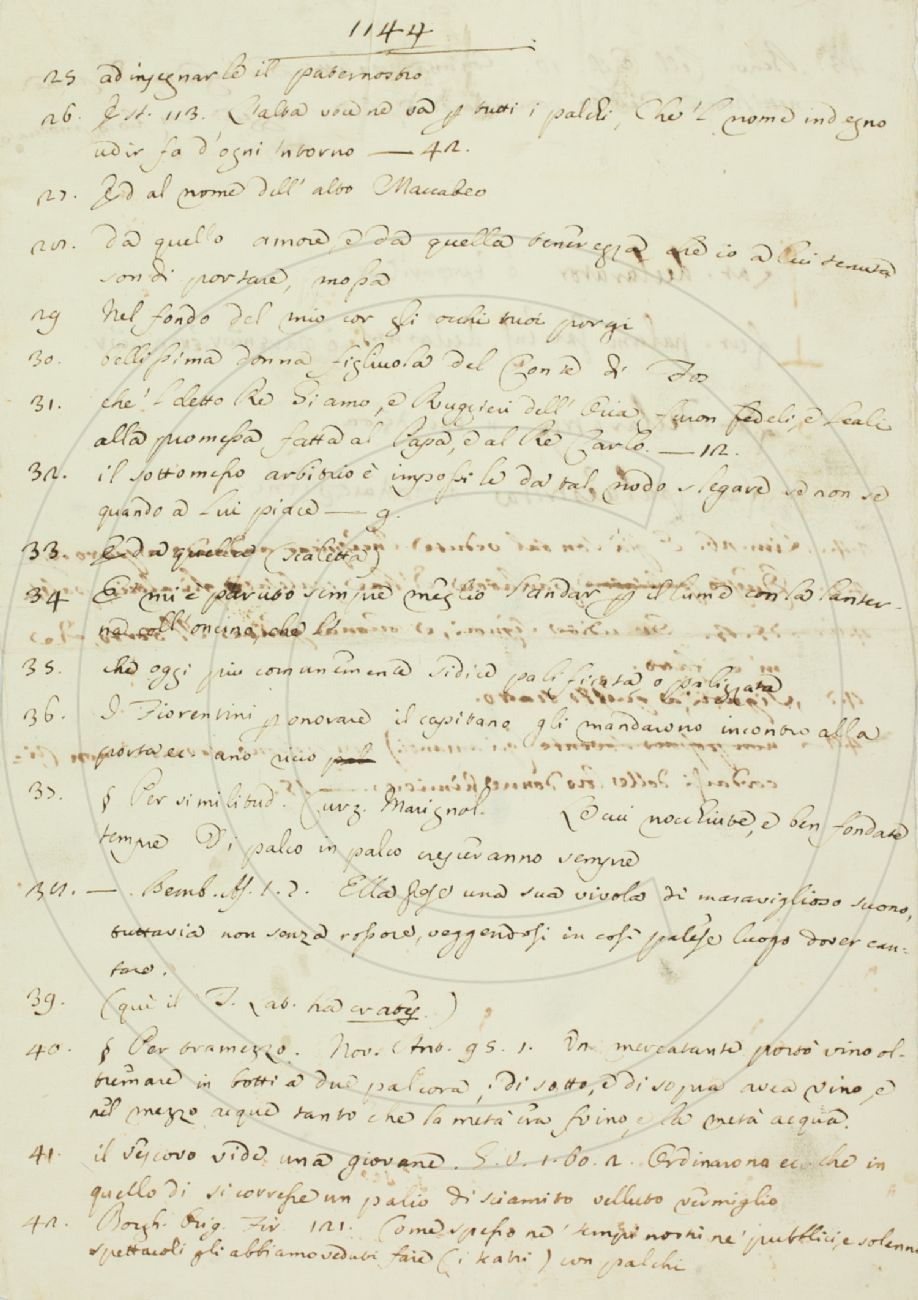 1144
25 ad insegnarle il paternostro
26. E st. 113. L'alta voce ne va p tutti i palchi, Che 'l nome indegno
udir fa d'ogni intorno — 42.
27. Ed al nome dell' alto Maccabeo
28. da quello amore, e da quella tenerezza che io a lui tenuta
son di portare, mossa
29 Nel fondo del mio cor gli occhi tuoi porgi
30. bellissima donna figliuola del Conte di
31. che 'l detto Re Giamo, e Ruggieri dell' Oria furon fedeli, e leali
alla promessa fatta al Papa, e al Re Carlo. — 12.
32. il sottomesso arbitrio è impossibile da tal nodo slegare se non se
quando a lui piace — 9.
33. Ed a quella (scaletta)
34 E' mi è paruto sempre meglio standar p il lume con la lanter-
na coll' oncino, che
35. che oggi più comunemente si dice palificata o palizzata
36. I Fiorentini p onorare il capitano gli mandarono incontro alla
porta ec. uno ricco pal
37. § Per similitud. Curz. Marignol. Le cui nocchiute, e ben fondate
tempre Di palco in palco cresceranno sempre
38. — . Bemb. As. 1. 2. Ella prese una sua vivola di maraviglioso suono,
tuttavia non senza rossore, veggendosi in così palese luogo dover can-
tare.
39. (qui il T. Lab. ha )
40. § Per tramezzo. Nov. Ant. 95. 1. Un mercatante portò vino ol-
tremare in botti a due palcora; di sotto, e di sopra avea vino, e
nel mezzo acqua tanto che la metà era vino, e la metà acqua.
41. il vescovo vide una giovane. G. V. 1. 60. 2. Ordinarono ec. che in
quello dì si corresse un palio di sciamito velluto vermiglio
42. Borgh. Orig. Fir. 121. Come spesso ne' tempi nostri ne' pubblici, e solenni
spettacoli gli abbiamo veduti fare (i teatri) con palchi